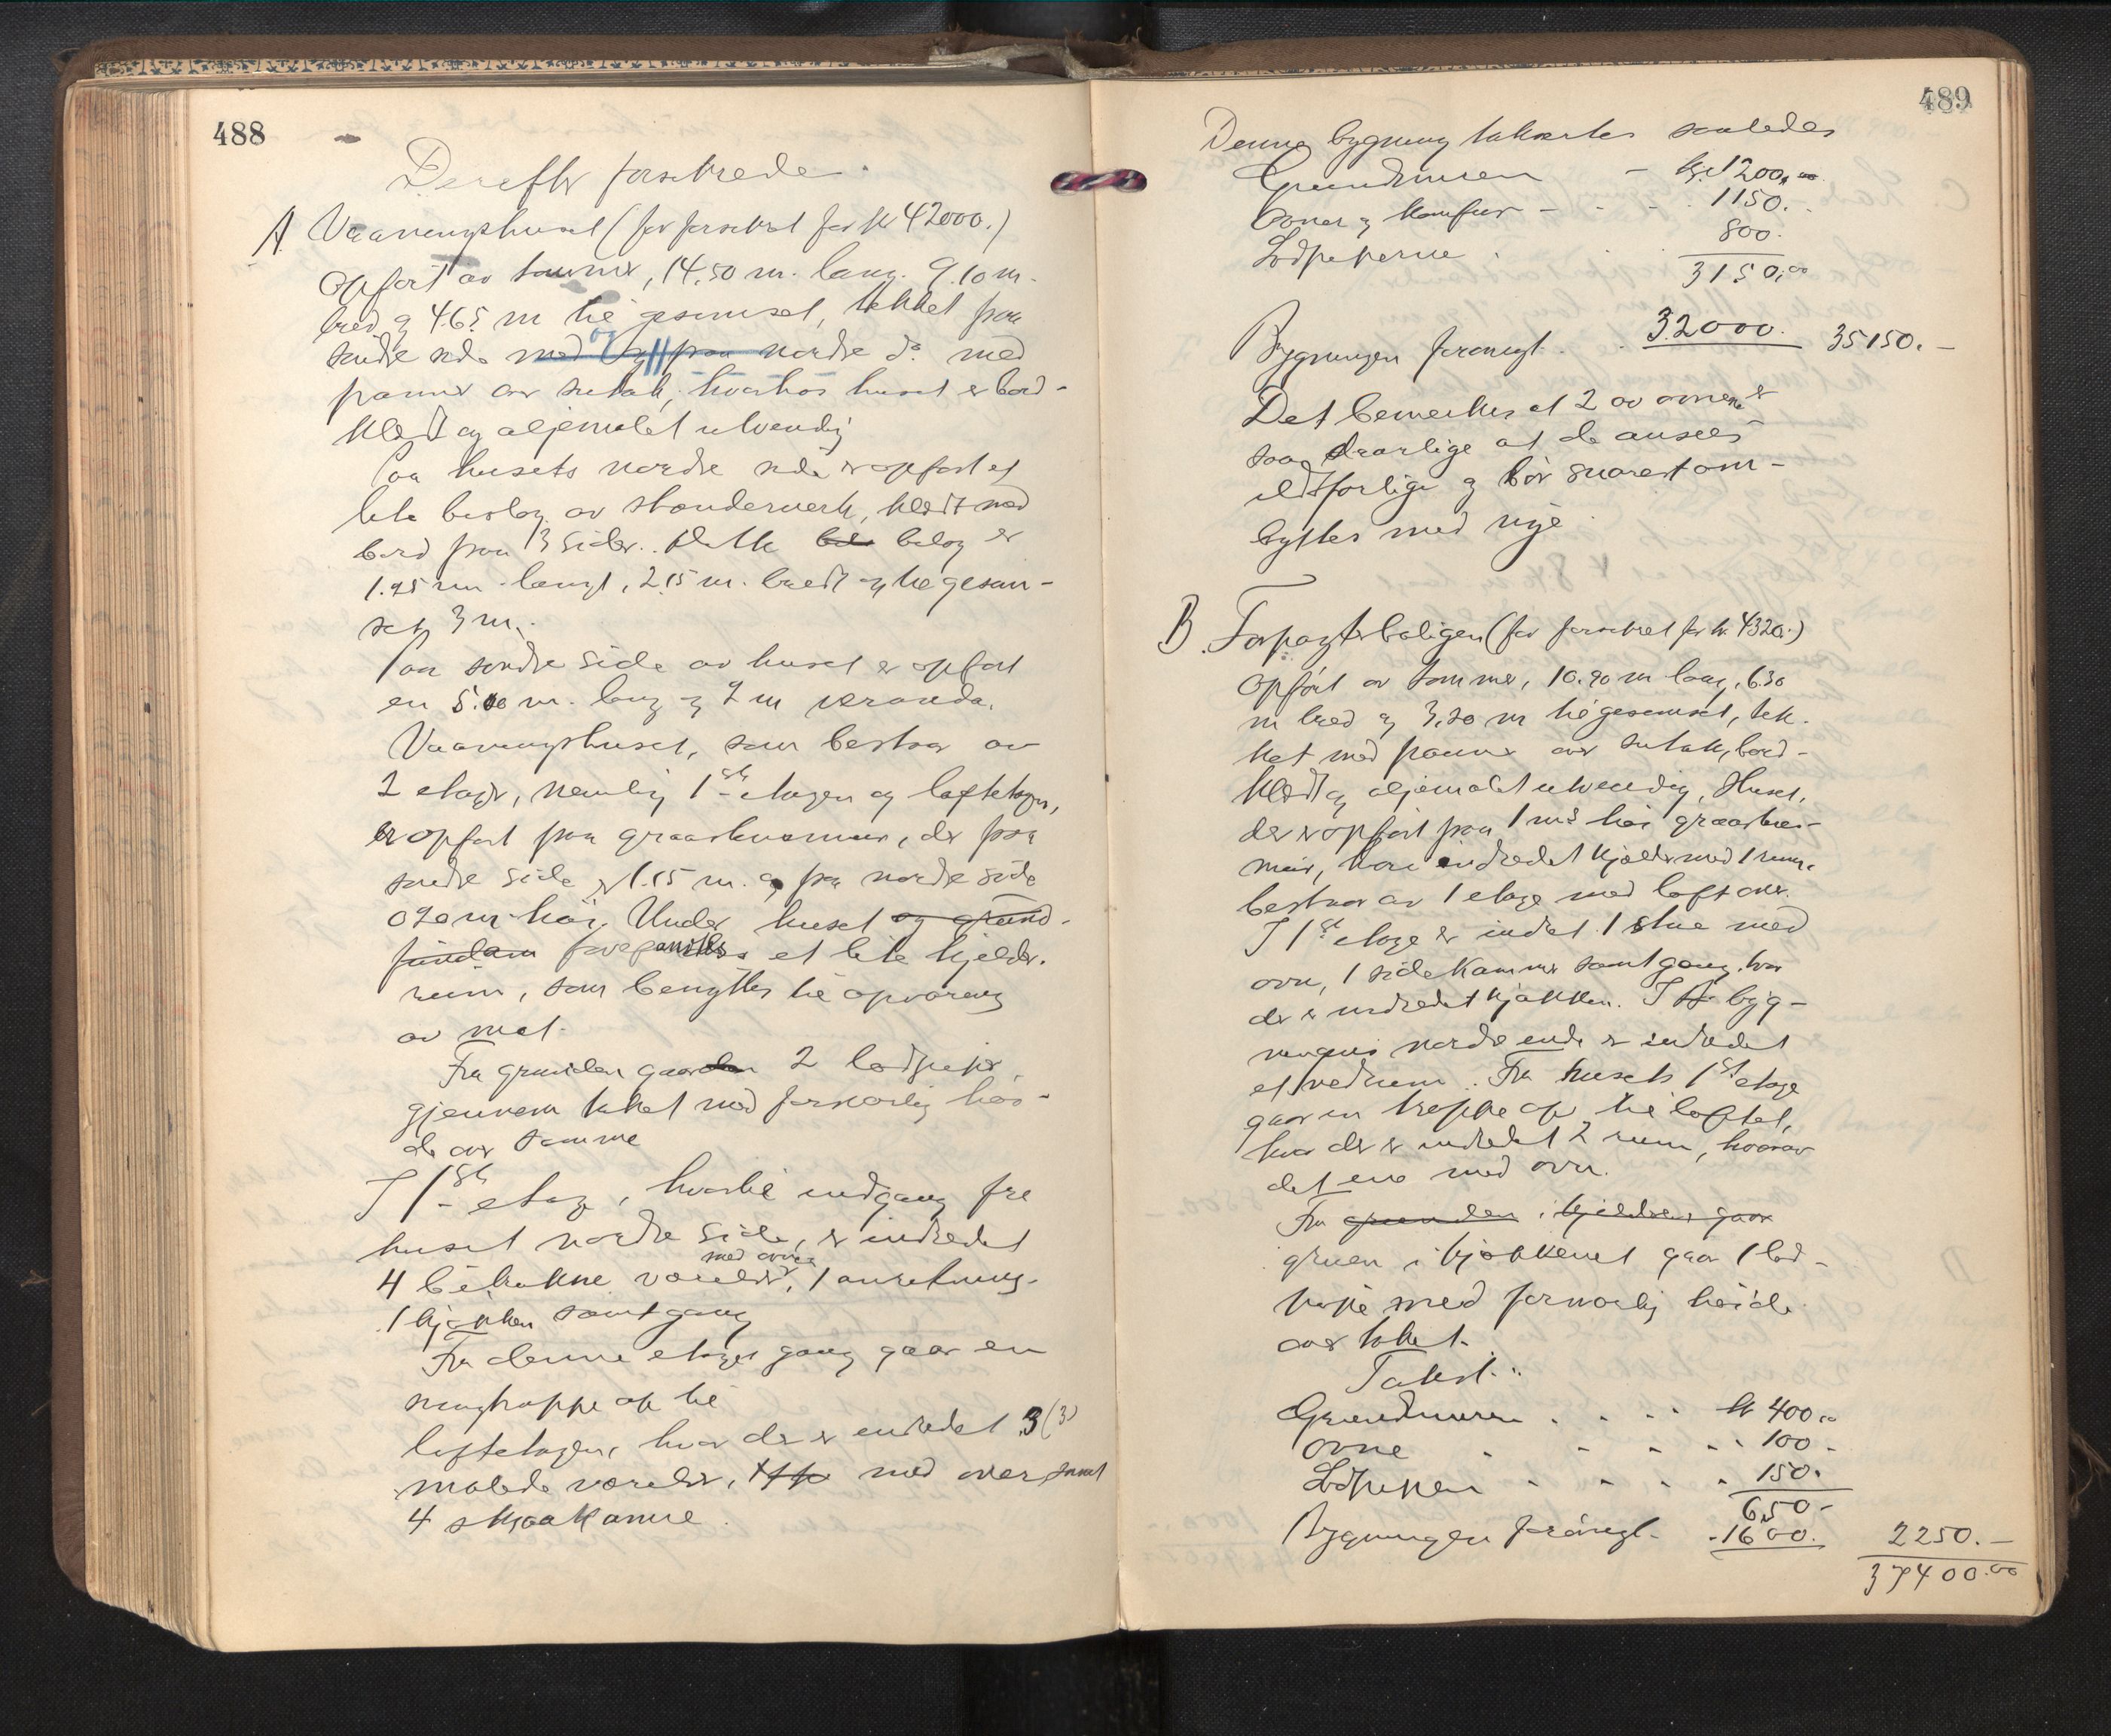 488
Derefter forsikrede
A. Vaaningshuset (før forsikret for kr 42000.)
opført av tømmer, 14,50 m. lang. 9.10 m.
bred og 4.65 m til gesimset, tækket paa
søndre side med og paa nordre do. med
panner over sutak, hvorhos huset er bord-
klædt og oljemalet utvendig
Paa husets nordre side er opført et
lite bislag av stænderverk, klædt med
bord paa 3 sider. Dette bis bilag er
1.95 m. langt, 2.15 m. bredt og til gesim-
set 3 m.
Paa søndre side av huset er opført
en 5.00 m. lang og 2 m veranda.
Vaaningshuset, som bestaar av
2 etager, nemlig 1ste etagen og loftetagen,
er opført paa graastensmur, der paa
søndre side er 1.15 m. og paa nordre side
0.90 m. høi. Under huset og grund-
et lite kjelder-
rum, som benyttes til opvaring
av mat.
Fra grunden gaar 2 lodpiper
gjennem taket med forsvarlig høi-
de over samme
I 1ste etage, hvortil indgang fra
huset nordre side, er indredet
med ovne
4 betrukne værelser, 1 anretning-
1 kjøkken samt gang
Fra denne etages gang gaar en
svingtrappe op til
loftetagen, hvor der er indredet 3 (3)
malede værelser, med ovner samt
4 skraakamre.
489
Denne bygning takseres saaledes
Grundmuren - kr. 1200,00
Ovner og komfur - - - 1150.-
Lodpiperne . . 800.
3150,00
Bygningen forøvrigt . . 32000. 35150.-
Det bemerkes at 2 av ovnene er
saa daarlige at de ansees
ildsfarlige og bør snarest om-
byttes med nye
B. Forpagterboligen (før forsikret for kr. 4320.)
opført av tømmer, 10.90 m lang, 6.30
m bred og 3,20 m til gesimset, tæk-
ket med panner over sutak, bord-
klædt og oljemalet utvendig. Huset,
der er opført paa 1 ms høi graastens-
mur, har indredet kjelder med 1 rum,
bestaar av 1 etage med loft over.
I 1ste etage er indr. 1 stue med
ovn, 1 sidekammer samt gang, hvor
der er indredet kjøkken. I byg-
ningens nordre ende er indredet
et vedrum. Fra husets 1ste etage
gaar en trappe op til loftet,
hvor der er indredet 2 rum, hvorav
det ene med ovn.
Fra grunden i kjelderen gaar
gruen i kjøkkenet gaar 1 lod-
pipe med forsvarlig høide
over taket.
Takst:
Grundmuren . . . . kr 400,00
Ovne - - - - - 100 -
Lodpipen . - - - . 150.
650-
Bygningen forøvrigt - 1600. 2250.-
37400.00